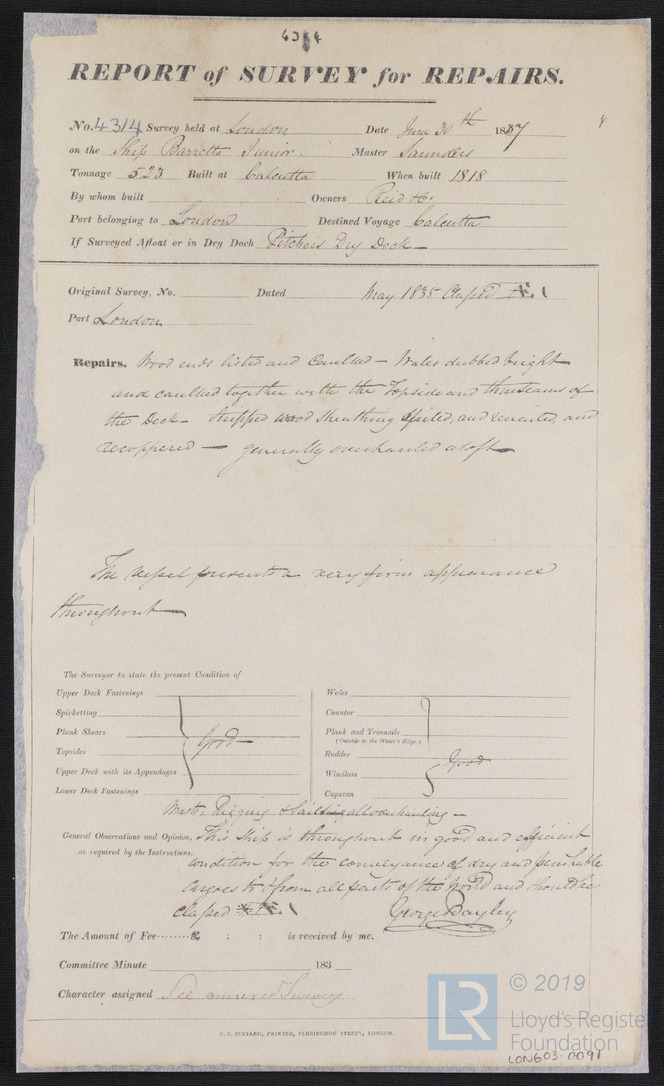 4314
REPORT of SURVEY for REPAIRS.
No. 4314 Survey held at London Date June 30th 1837
on the Ship Barretto Junior Master Saunders
Tonnage 523 Built at Calcutta When built 1818
By whom built Owners Reid & Co
Port belonging to London Destined Voyage Calcutta
If Surveyed Afloat or in Dry Dock Pitchers Dry Dock
Original Survey, No. Dated May 1835 Classed Æ 1
Port London
Repairs. Wood ends listed and Caulked – Wales dubbed bright
and caulked together with the Topside and three seams of
the Deck – Stripped wood Sheathing and
recoppered — generally overhauled aloft
The vessel presents a very firm appearance
throughout
The Surveyor to state the present Condition of
Upper Deck Fastenings
Spirketting
Plank Shears
Topsides
Upper Deck with its Appendages
Lower Deck Fastenings
Good
Wales
Counter
Plank and Treenails
(Outside to the Water's Edge.)
Rudder
Windlass
Capstan
Good
Masts Rigging & Sails all overhauling –
General Observations and Opinion, This Ship is throughout in good and efficient
as required by the Instructions, condition for the conveyance of dry and perishable
cargoes to & from all parts of the World and should be
classed Æ 1 George Bayley
The Amount of Fee £ : : is received by me.
Committee Minute 183
Character assigned See annexed Survey
PRINTER, FARRINGDON STREET, LONDON.
LR © 2019
Lloyd's Register
Foundation
LON603-0091